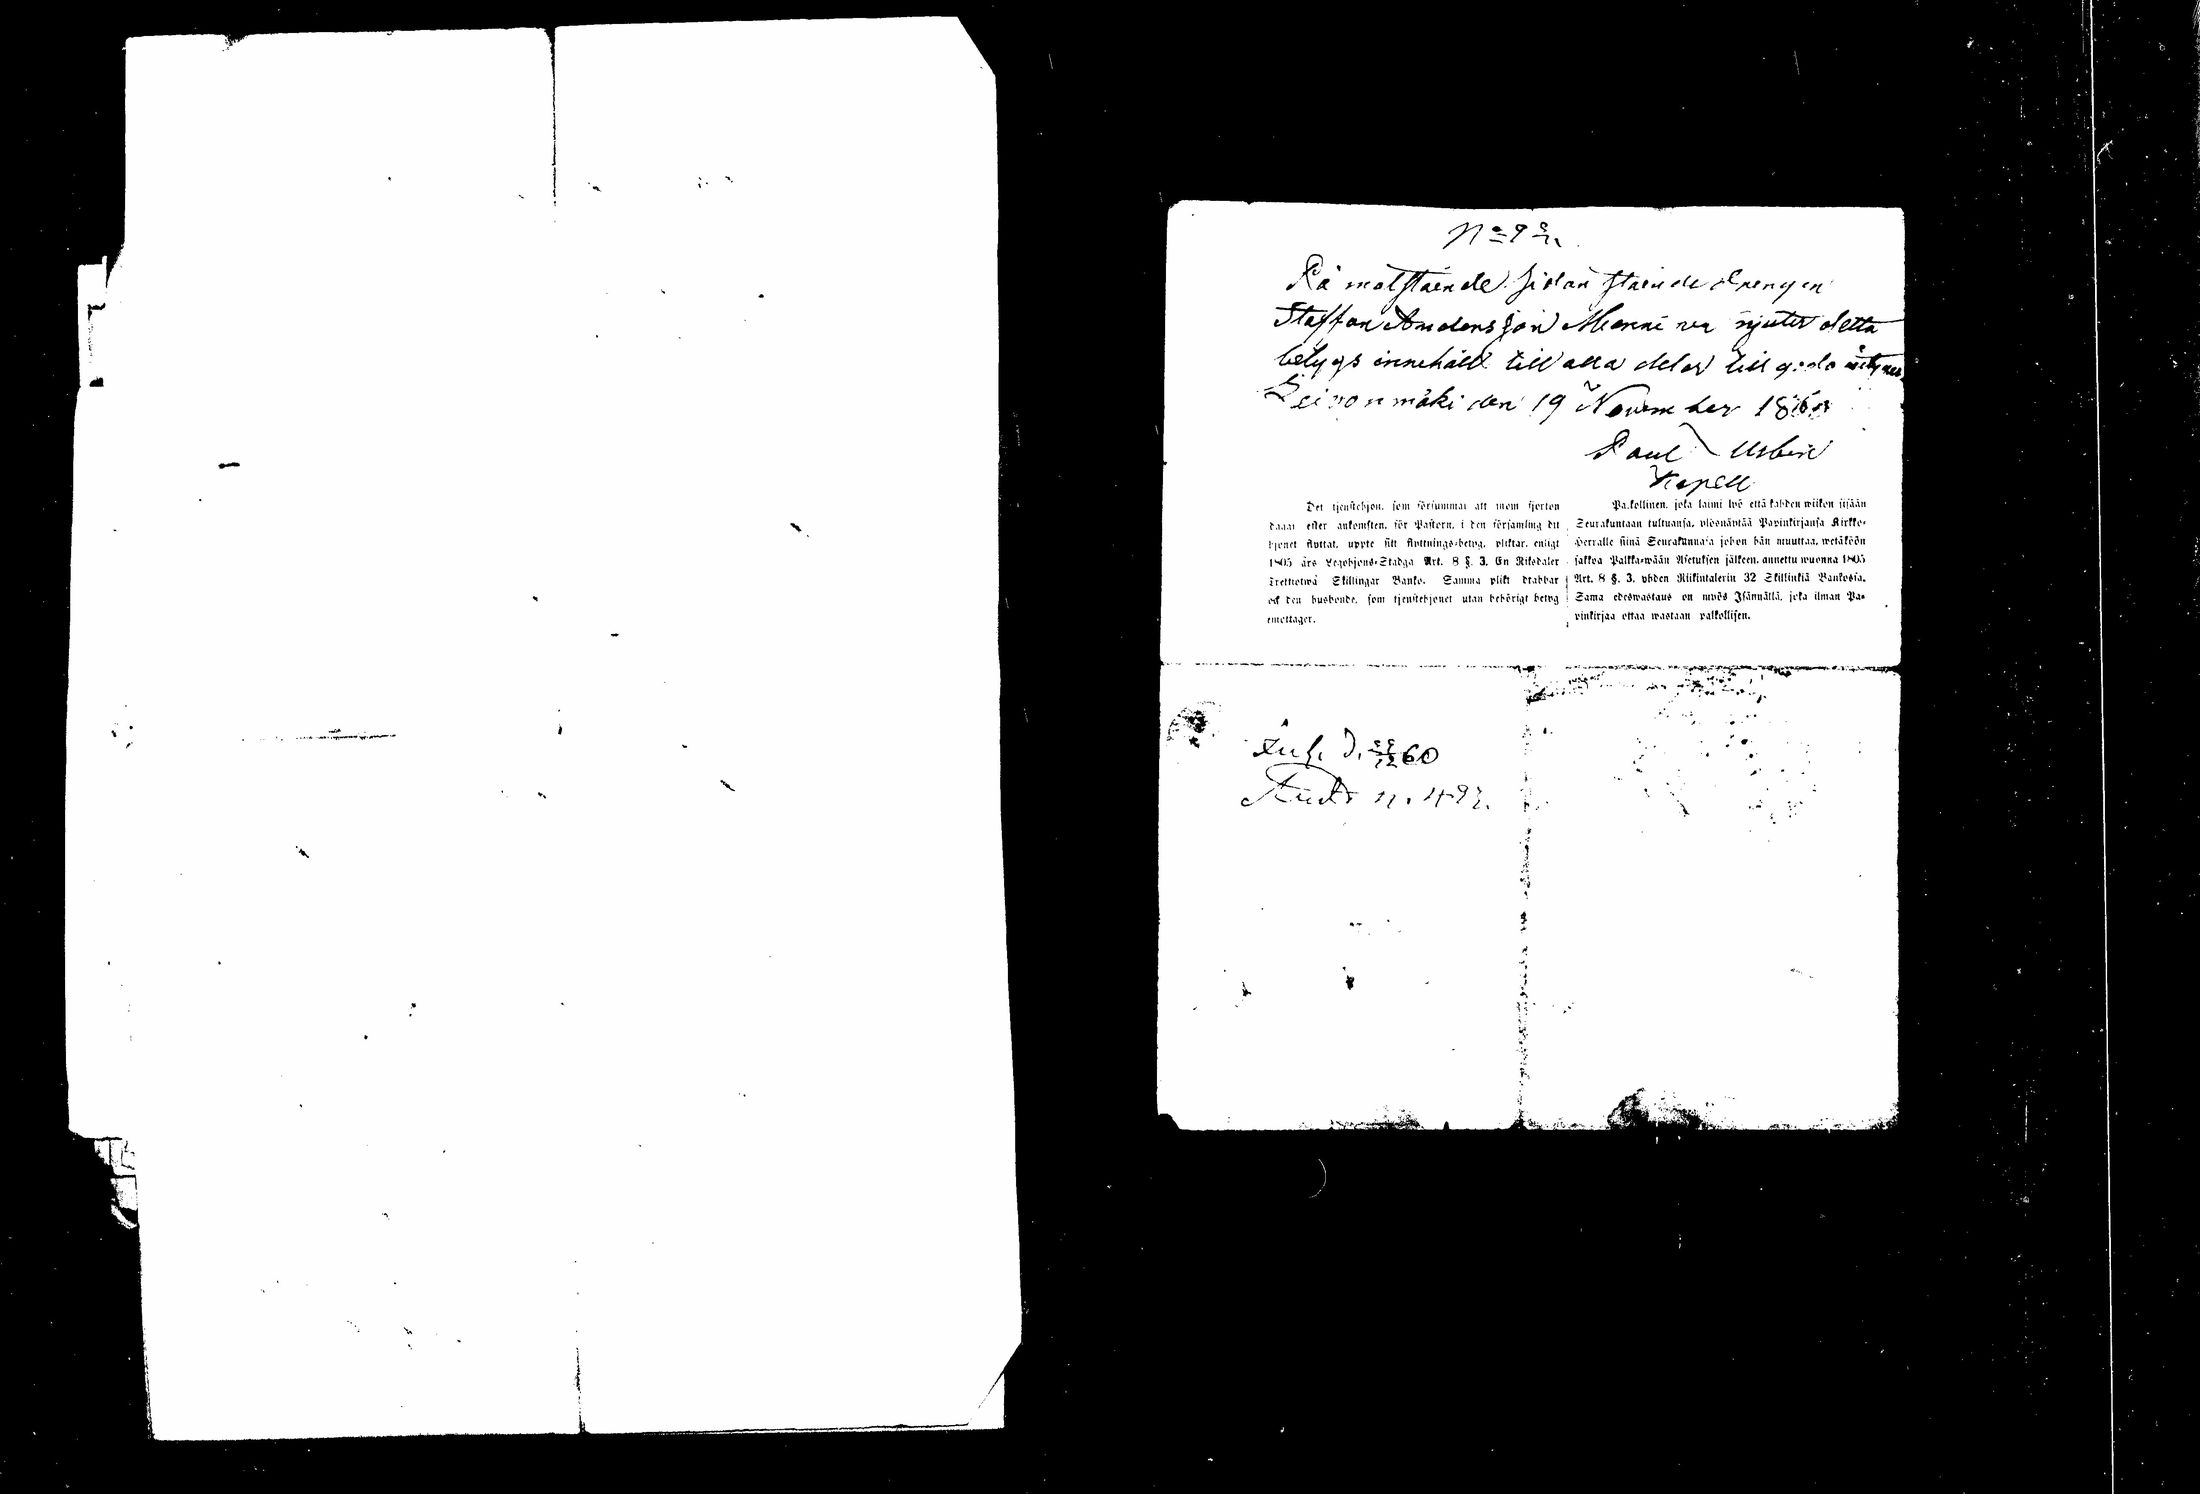 På motstående sidan stående Drengen
Staffan Andersson Manninen njuter detta
betygs innehåll till alla delar till godo intygar
Leivonmäki den 19 November 1860
Paul Usbin
Kapell
Det tjenstehjon, som försummar att inom fjorton
dagar efter ankomsten, för Pastorn, i den församling dit
hjonet flyttat, uppte sitt flyttnings-betyg, pliktar, enligt
1805 års Legohjons-Stadga Art. 8 §. 3. En Riksdaler
Trettiotwå Skillingar Banko. Samma plikt drabbar
ock den husbonde, som tjenstehjonet utan behörigt betyg
emottager.
Palkollinen, joka laimi lyö että kahden wiikon sisään
Seurakuntaan tultuansa, ylösnäyttää Papinkirjansa Kirkko-
Herralle siinä Seurakunnasa johon hän muuttaa, wetäköön
sakkoa Palkka-wään Asetuksen jälkeen, annettu wuonna 1805
Art. 8 §. 3, yhden Riikintalerin 32 Skillinkiä Bankosia.
Sama edeswastaus on myös Isännällä, joka ilman Pa-
pinkirjaa ottaa wastaan palkollisen.
60
n. 492.